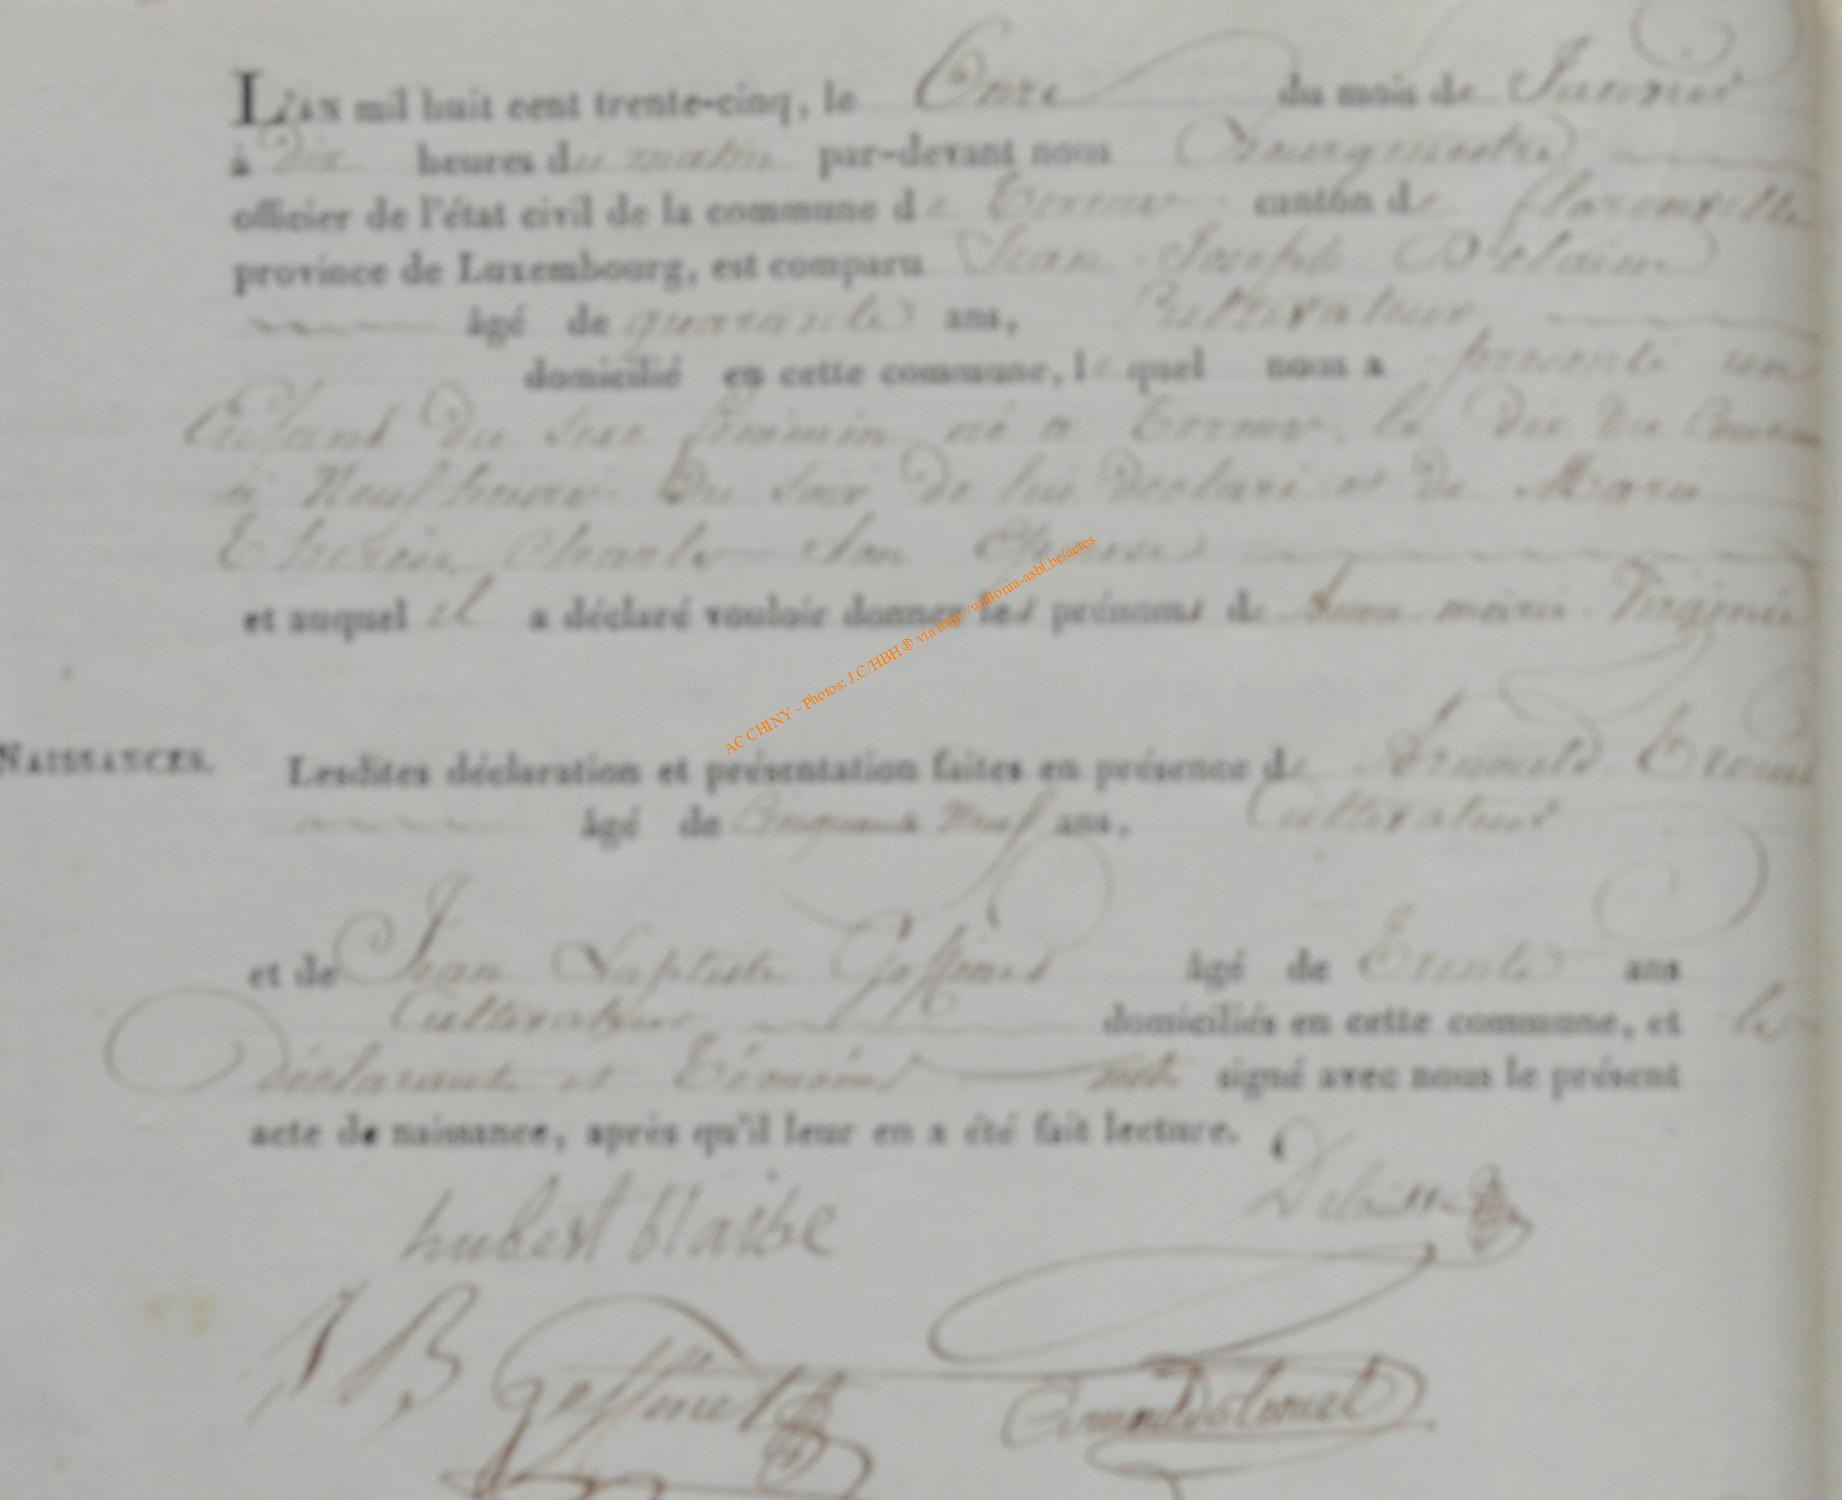 L'AN mil huit cent trente-cinq, le Onze du mois de Janvier
à dix heures du matin par-devant nous Bourgmestre
officier de l'état civil de la commune de Termes canton de florenville
province de Luxembourg, est comparu Jean Joseph
âgé de quarante ans, Cultivateur
domicilié en cette commune, lequel nous a presenté un
Enfant du sexe feminin né a Termes, le dix du Courant
a Neuf heures du soir de lui declaré et de Marie
son Epouse
et auquel il a déclaré vouloir donner les prénoms de Virginie
NAISSANCES. Lesdites déclaration et présentation faites en présence de Arnould
âgé de neuf ans, Cultivateur
et de Jean Baptiste âgé de Trente ans
Cultivateur domiciliés en cette commune, et les
déclarant et Témoins ont signé avec nous le présent
acte de naissance, après qu'il leur en a été fait lecture.
hubert
J B
AC CHINY - Photos: J.C/HBH ® via http://wallonia-asbl.be/actes